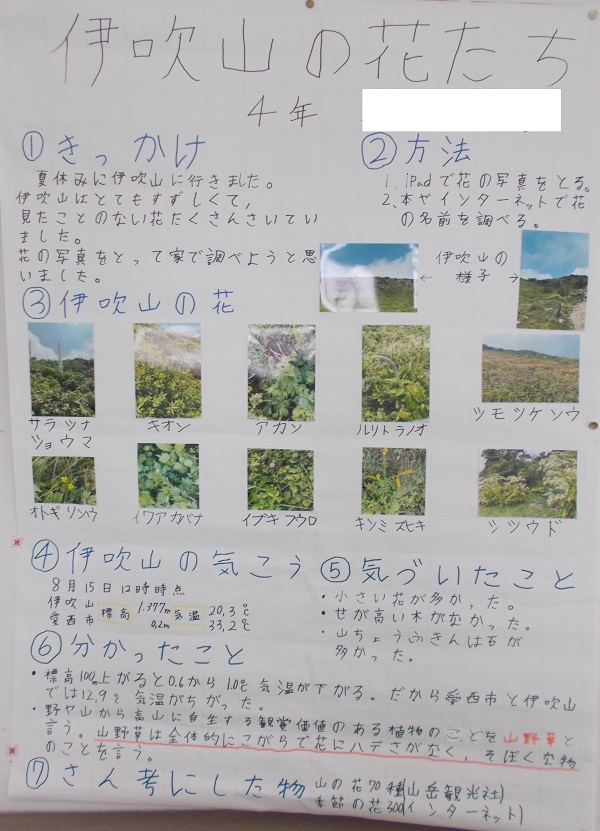 伊吹山の花たち
4年
①きっかけ
夏休みに伊吹山に行きました。
伊吹山はとてもすずしくて、
見たことのない花たくさんさいてい
ました。
花の写真をとって家で調べようと思
いました。
②方法
1、iPadで花の写真をとる。
2、本やインターネットで花
の名前を調べる。
←伊吹山の
様子→
③伊吹山の花
サラツナ
ショウマ
キオン
アカソ
ルリトラノオ
シモツケソウ
オトギリソウ
イワアカバナ
イブキフウロ
キンミズヒキ
シシウド
④伊吹山の気こう
8月15日12時時点
伊吹山 標高 1.377m 気温 20,3℃
愛西市 0,2m 33,2℃
⑤気づいたこと
・小さい花が多かった。
・せが高い木がなかった。
・山ちょうふきんは石が
多かった。
⑥分かったこと
・標高100m上がると0.6から1.0℃気温が下がる。だから愛西市と伊吹山
では12,9℃気温がちがった。
・野や山から高山に自生する観賞価値のある植物のことを山野草と
言う。山野草は全体的にこがらで花にハデさがなく、そぼくな物
のことを言う。
⑦さん考にした物
山の花70種(山岳観光社)
季節の花300(インターネット)